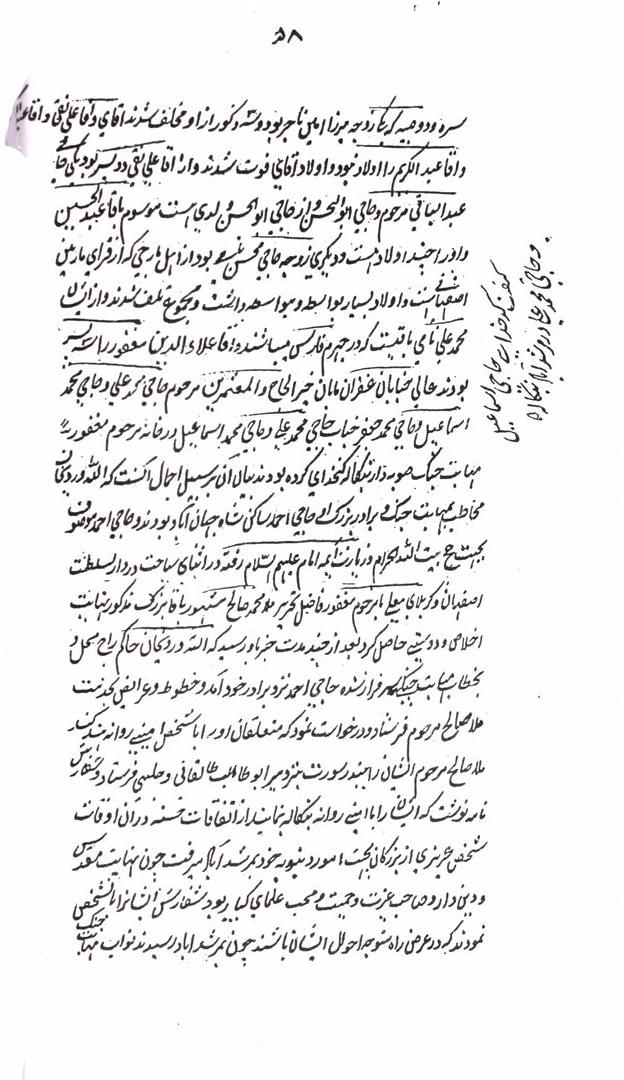 ۵۸
سره و دو صبیه که یکی زوجه میرزا امین تاجر بود و سه ذکور از او مخلف شدند آقای و آقا علی نقی و آقا عبد
و آقا عبد الکریم را اولاد نبود و اولاد آقای فوت شدند و از آقا علی نقی دو پسر بود یکی حاجی
عبد الباقی مرحوم و حاجی ابو الحسن و از حاجی ابو الحسن ولدی است موسوم باقا عبد الحسین
و او را چند اولاد است و دیگری زوجه حاجی محسن بود از اهل مارچی که از قرای ماربین
اصفهانست و اولاد بسیار بواسطه و بیواسطه داشت و مجموع تلف شدند و از ایشان
محمد علی نامی باقیست که در جهرم فارس می‌باشند و آقا علاء الدین مغفور را سه پسر
بودند عالی جنابان غفران مآبان خیر الحاج و المعتمرین مرحوم حاجی محمد علی و حاجی محمد
اسماعیل و حاجی محمد جعفر جناب حاجی محمد علی و حاجی محمد اسماعیل در خانه مرحوم مغفور
مهابت جنگ صوبه دار بنگاله کتخدای کرده بودند بیان آن بر سبیل اجمال آنست که الله وردیخان
مخاطب بمهابت جنگ و برادر بزرگ او حاجی احمد ساکن شاه جهان آباد بودند و حاجی احمد موصوف
بجهت حج بیت الله الحرام و زیارت ائمه امام علیهم السلام رفته در اثنای سیاحت در دار السلطنت
اصفهان و کربلای معلی با مرحوم مغفور فاضل تحریر ملا محمد صالح مشهور باقا بزرگ مذکور نهایت
اخلاص و دوستی حاصل کرد بعد از چند مدت خبر باو رسید که الله وردیخان حاکم راج محل و
بخطاب مهابت جنگ سرفراز شده حاجی احمد نزد برادر خود آمد و خطوط و عرایض بخدمت
ملا صالح مرحوم فرستاد و درخواست نمود که متعلقان او را با شخص امینی روانه هند کند
ملا صالح مرحوم ایشان را ببندر سورت بنزد میر ابو طالب طالقانی و حلمی فرستاد و سفارش
نامه نوشت که ایشان را با امینی روانه بنگاله نمایند از اتفاقات حسنه در آن اوقات
شخص عزیزی از بزرگان بجهت امور دنیویه خود بمرشد آباد میرفت چون نهایت مقدس
و دیندار و صاحب عزت و حمیت و محب علمای کبار بود سفارش ایشان را با آن شخص
نمودند که در عرض راه متوجه احوال ایشان باشند چون بمرشد آباد رسیدند نواب مهابت جنگ
کیفیت کتخدایی حاجی اسماعیل
و حاجی محمد علی در بنگاله